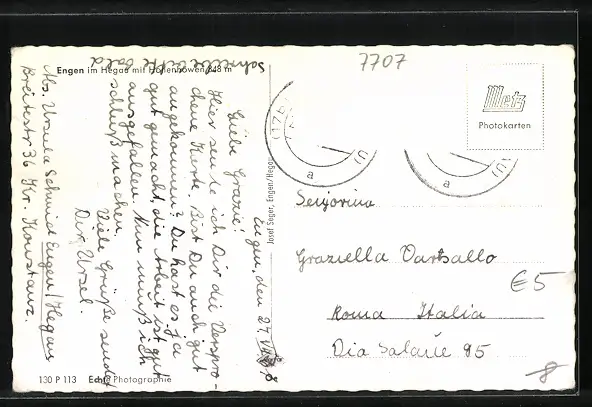 Engen im Hegau mit Hohenhöwen 848 m
7707
Metz
Photokarten
Engen, den 27.
Liebe Grazie!
Hier sende ich Dir die Verspro-
chene Karte. Bist Du auch gut
angekommen? Du hast es ja
gut gemacht, die Arbeit ist gut
ausgefallen. Nun muß ich
schluß machen.
Viele Grüße sendet
Dir Ursel.
Schreibe bitte bald
Abs. Ursula Schmid Engen/Hegau
Breitestr 36 Kr. Konstanz.
Josef Seger, Engen/Hegau
a
a
Senjorina
Graziella Vartsallo
Roma Italia
Via Salarie 95
€5
8
130 P 113 Echte Photographie